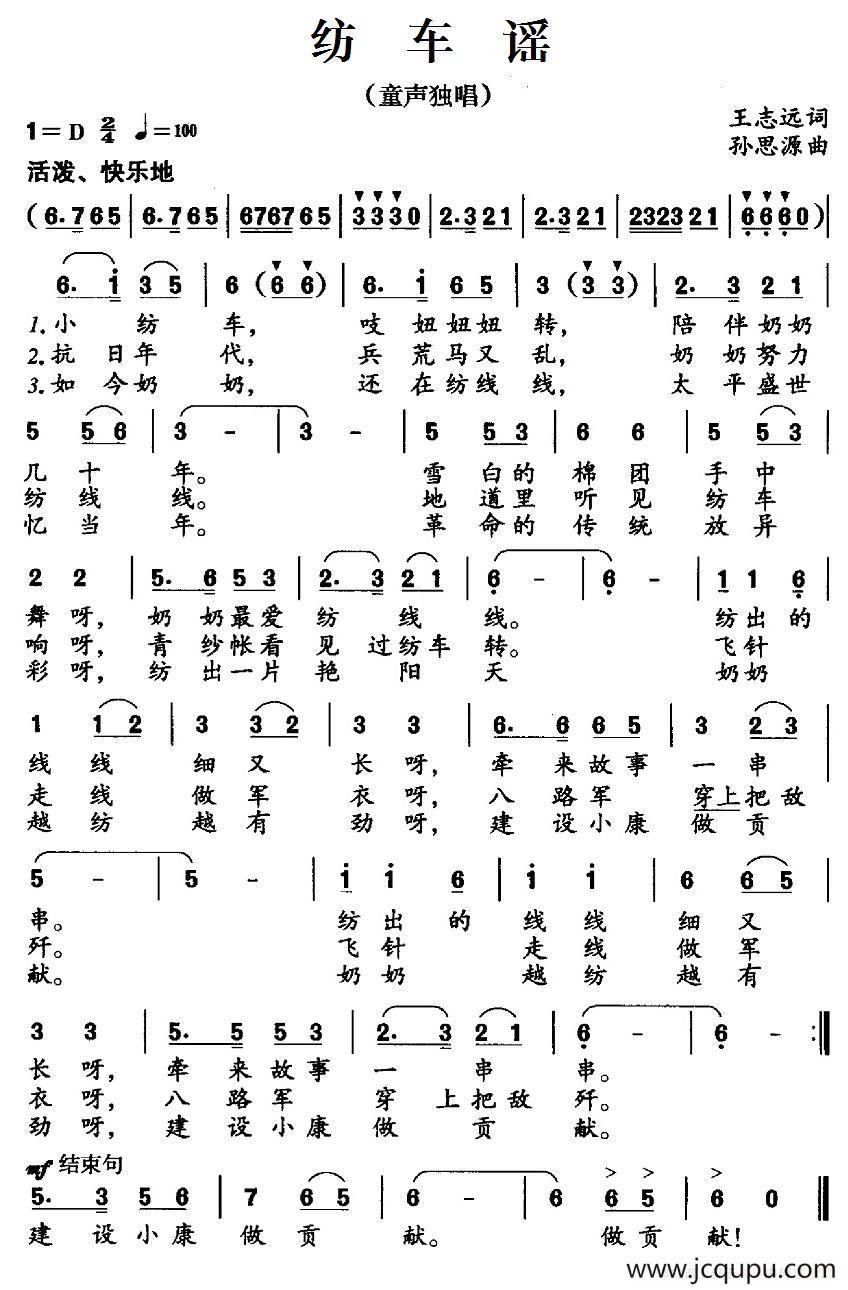 纺 车 谣
（童声独唱）
1=D 2/4 ♩=100
王志远词
孙思源曲
活泼、快乐地
(6·765 | 6·765 | 676765 | 3330 | 2·321 | 2·321 | 232321 | 6660) |
6· i 3 5 | 6 (6 6) | 6· i 6 5 | 3 (3 3) | 2· 3 2 1 |
1.小 纺 车， 吱 妞妞妞 转， 陪 伴奶奶
2.抗 日年 代， 兵 荒马又 乱， 奶 奶努力
3.如 今奶 奶， 还 在纺线 线， 太 平盛世
5 5 6 | 3 - | 3 - | 5 5 3 | 6 6 | 5 5 3 |
几 十 年。 雪 白的 棉 团 手 中
纺 线 线。 地 道里 听 见 纺 车
忆 当 年。 革 命的 传 统 放 异
2 2 | 5· 6 5 3 | 2· 3 2 1 | 6 - | 6 - | 1 1 6 |
舞 呀， 奶 奶最爱 纺 线 线。 纺 出 的
响 呀， 青 纱帐看 见 过纺车 转。 飞 针
彩 呀， 纺 出一片 艳 阳 天 奶 奶
1 1 2 | 3 3 2 | 3 3 | 6· 6 6 5 | 3 2 3 |
线 线 细 又 长 呀， 牵 来故事 一 串
走 线 做 军 衣 呀， 八 路军 穿上把敌
越 纺 越 有 劲 呀， 建 设小康 做 贡
5 - | 5 - | i i 6 | i i | 6 6 5 |
串。 纺 出 的 线 线 细 又
歼。 飞 针 走 线 做 军
献。 奶 奶 越 纺 越 有
3 3 | 5· 5 5 3 | 2· 3 2 1 | 6 - | 6 - :||
长 呀， 牵 来故事 一 串 串。
衣 呀， 八 路军 穿 上把敌 歼。
劲 呀， 建 设小康 做 贡 献。
mf 结束句
5· 3 5 6 | 7 6 5 | 6 - | 6 - | 6 5 | 6 0 ||
建 设小康 做 贡 献。 做贡 献！
www.jcqupu.com